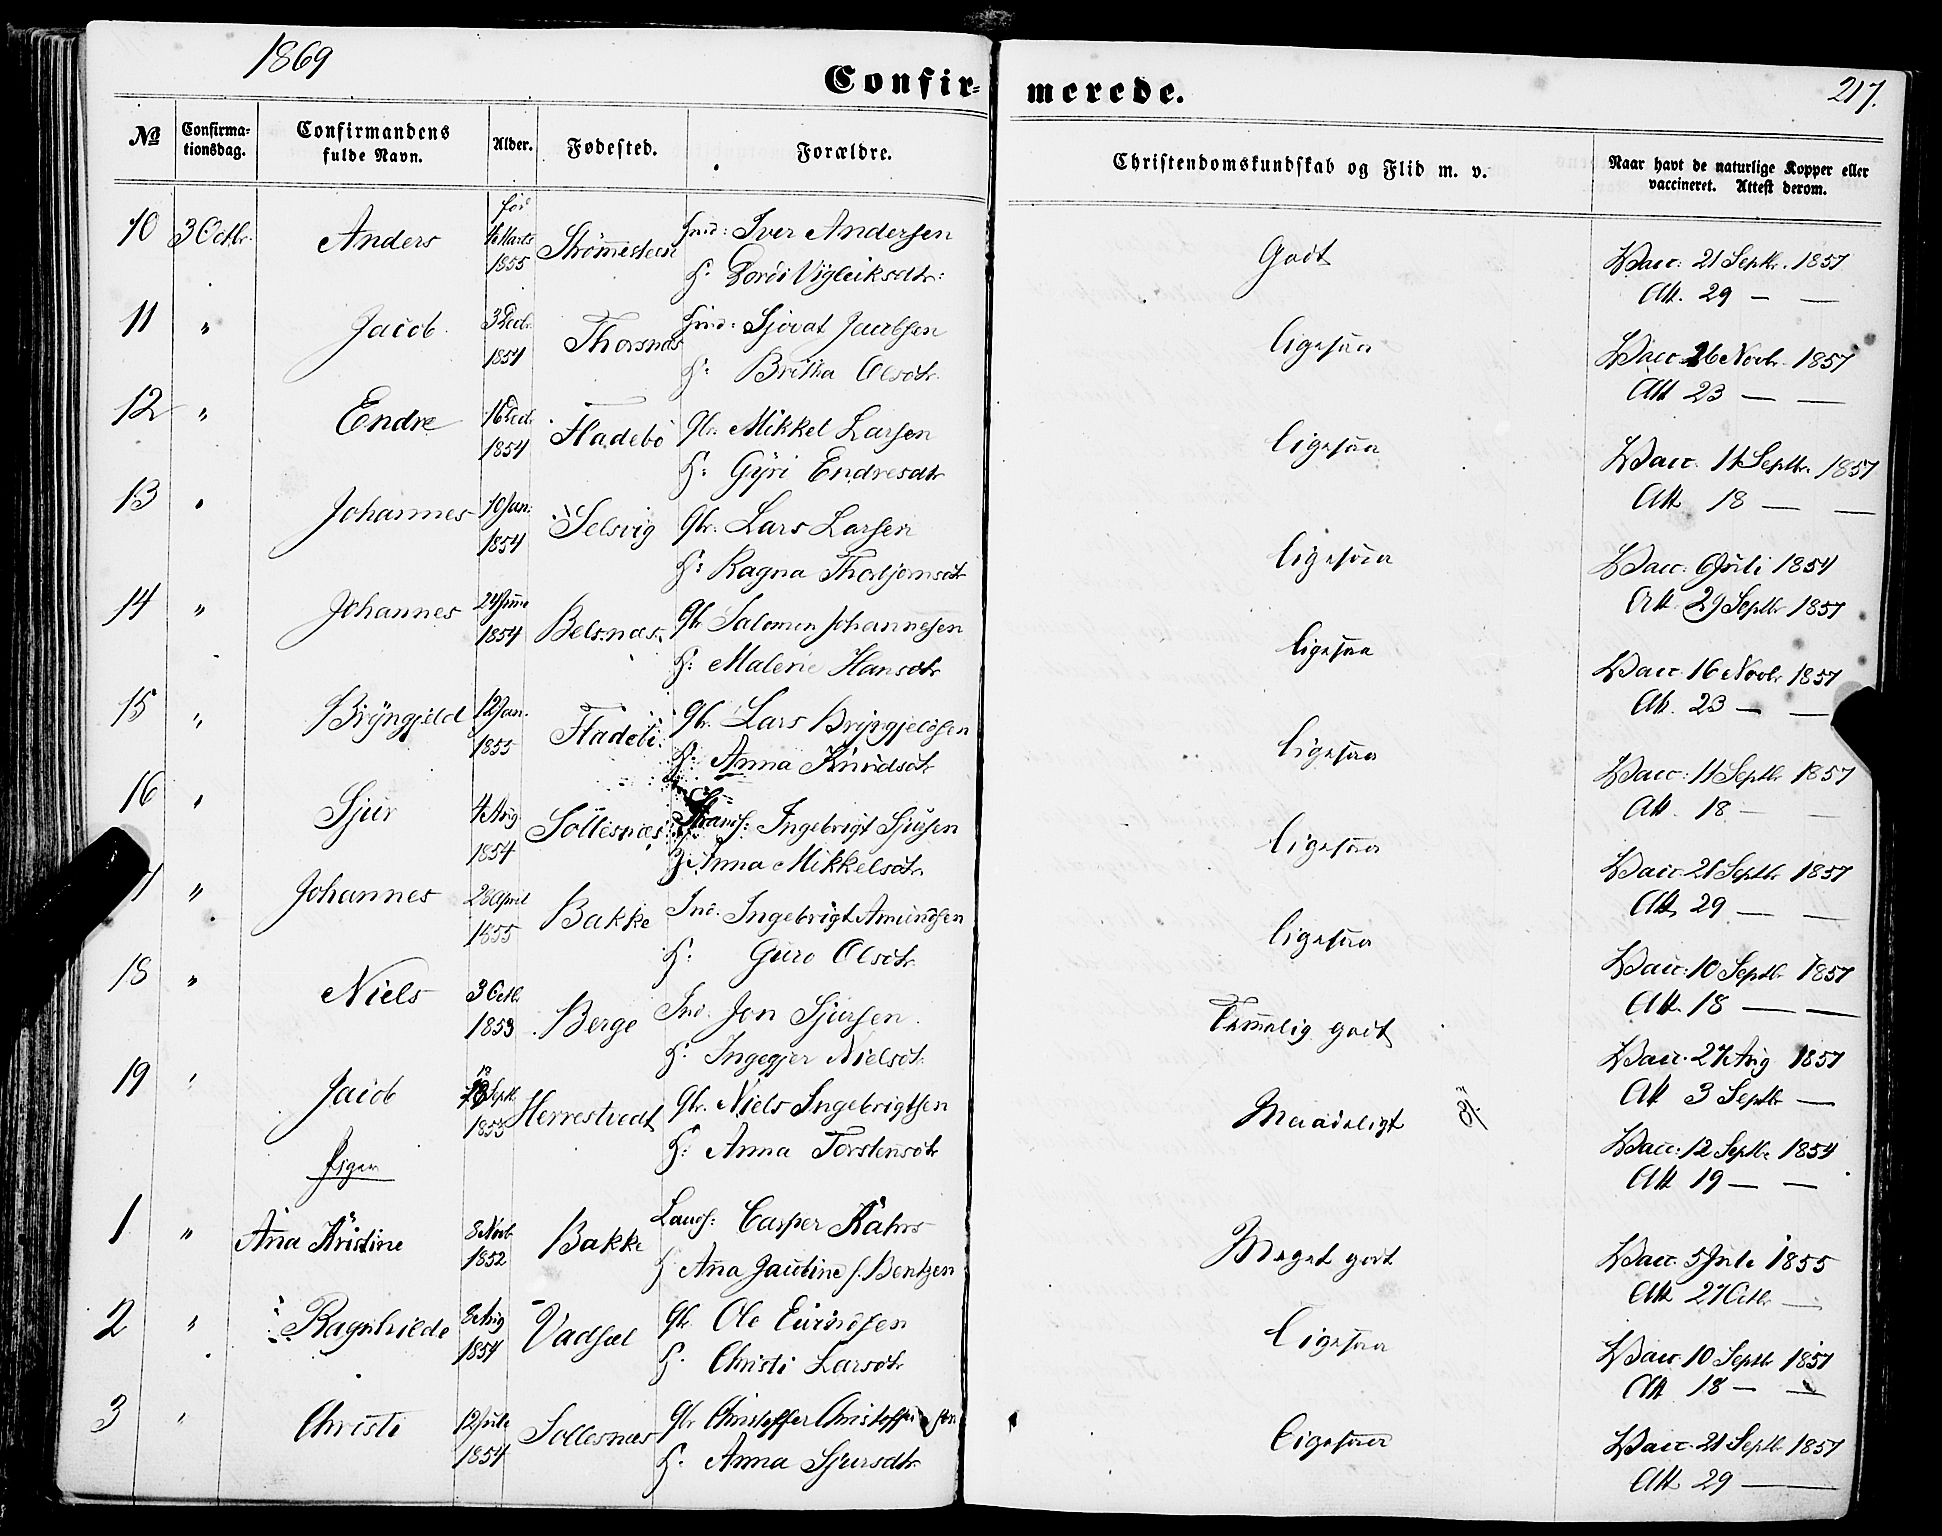 1869
Confirmerede.
217.
№ Confirmationsdag. Confirmandens fulde Navn. Alder. Fødested. Forældre. Christendomskundskab og Flid m. v. Naar havt de naturlige Kopper eller vaccineret. Attest derom.
10 3 Octbr. Anders 1855 Iver Andersen Godt Vacc: 21 Septbr. 1857
H: Vigleiksdtr: Att. 29 — —
11 " Jacob 3 Decb. 1854 Thorsnæs Sjovat Jacobsen ligesaa Vacc. 16 Novbr. 1857
H: Britha Olsdtr. Att 23 — —
12 " Endre 16 Decb. 1854 Fladebö Gbr. Mikkel Larsen ligesaa Vacc. 11 Septbr. 1857
H: Gÿri Endresdtr Att 18 — —
13 " Johannes 10 Jan: 1854 Selsvig Gbr. Lars Larsen ligesaa Vacc: 6 Juli 1854
H: Ragna Thorbjørnsdtr Att. 29 Septbr 1857
14 " Johannes 24 Juni 1854 Belsnæs Gbr Salomon Johannesen ligesaa Vacc 16 Novbr 1857
H: Malene Hansdtr Att. 23 — —
15 " Brÿngjeld 12 Jan. 1855 Fladebö Gbr. Lars Brÿngjeldsen ligesaa Vacc: 11 Septbr 1857
H: Anna Knudsdtr Att. 18 — —
16 " Sjur 4 Aug 1854 Sollesnæs Strands: Ingebrigt Sjursen ligesaa Vacc. 21 Septbr 1857
H Anna Mikkelsdtr. Att. 29 — —
" Johannes 28 April 1855 Bakke Ind. Ingebrigt Amundsen ligesaa Vacc: 10 Septbr 1857
H: Guro Olsdtr Att. 18 — —
18 " Niels 3 Octb. 1853 Berge Ind. Jon Sjursen Temmelig godt Vacc. 27 Aug 1857
H: Ingegjer Nielsdt. Att 3 Septbr —
19 " Jacob Septb. 1853 Herrestvedt Gbr. Niels Ingebrigtsen Maadeligt Vacc: 12 Septbr 1854
H: Anna Torstensdtr Att 19 — —
Piger
1 " Ana Kristine 8 Novb 1852 Bakke Lands: Casper Rahrs Meget godt Vacc. 5 Juli 1855
H Ana Jacobine f. Bentzen Att 27 Octbr —
2 " Ragnhilde 8 Aug 1854 Vadsel Gbr Ole Eivindsen Ligesaa Vacc 10 Septbr 1857
H. Christi Larsdtr Att 18 — —
3 " Christi 12 Juli 1854 Sollesnæs Gbr Christoffer Christoffersen Ligesaa Vacc. 21 Septb 1857
H. Anna Sjursdtr. Att 29 — —